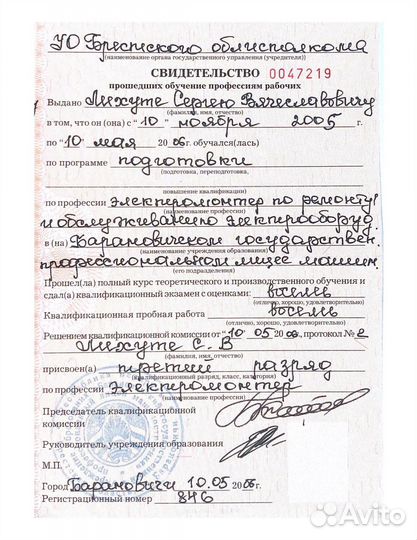 УО Брестского облисполкома
(наименование органа государственного управления (учредителя))
СВИДЕТЕЛЬСТВО 0047219
прошедших обучение профессиям рабочих
Выдано Лихуте Сергею Вячеславовичу
(фамилия, имя, отчество)
в том, что он (она) с "10" ноября 2005 г.
по "10" мая 2006 г. обучался(лась)
по программе подготовки
(подготовка, переподготовка,
повышение квалификации)
по профессии электромонтер по ремонту
(наименование профессии)
и обслуживанию электрооборуд.
в (на) Барановичском государствен.
(наименование учреждения образования)
профессиональном лицее машин.
(его подразделения)
Прошел(ла) полный курс теоретического и производственного обучения и
сдал(а) квалификационный экзамен с оценками: восемь
(отлично, хорошо, удовлетворительно)
Квалификационная пробная работа восемь
(отлично, хорошо, удовлетворительно)
Решением квалификационной комиссии от "10" 05 2006, протокол № 2
Лихуте С. В
(фамилия, имя, отчество)
присвоен(а) третий разряд
(квалификационный разряд, класс, категория)
по профессии Электромонтер
Председатель квалификационной
комиссии
Руководитель учреждения образования
М.П.
Город Барановичи 10.05 2006 г.
Регистрационный номер 846
Avito